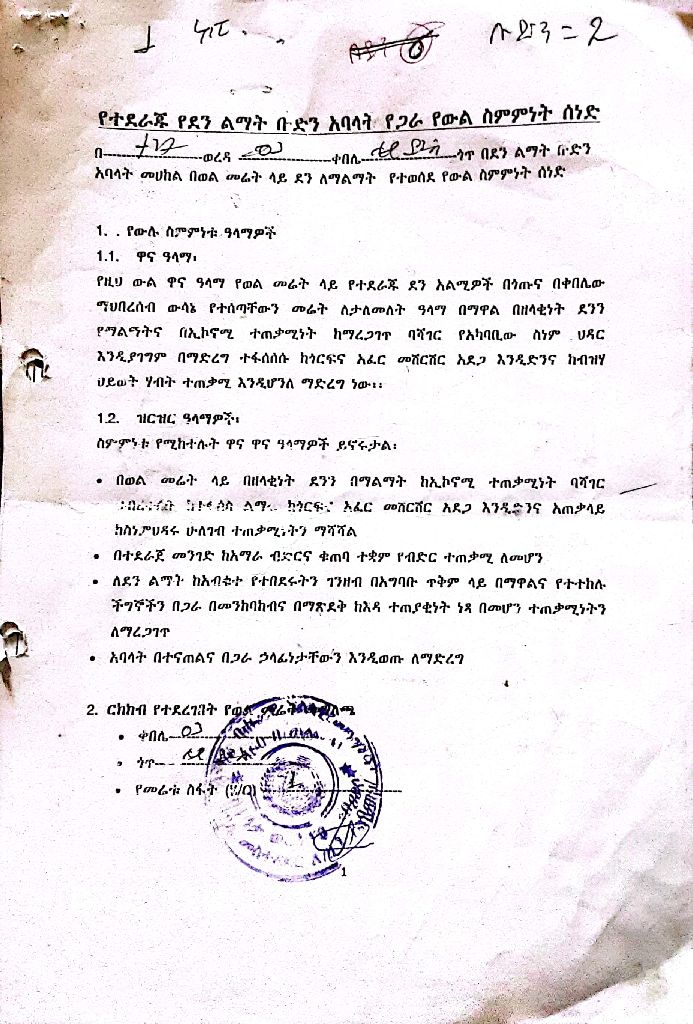 ቡድን = 2
የተደራጁ የደን ልማት ቡድን አባላት የጋራ የውል ስምምነት ሰነድ
በ ወረዳ ቀበሌ ጎጥ በደን ልማት ቡድን
አባላት መሀከል በወል መሬት ላይ ደን ለማልማት የተወሰደ የውል ስምምነት ሰነድ
1. . የውሉ ስምምነቱ ዓላማዎች
1.1. ዋና ዓላማ፡
የዚህ ውል ዋና ዓላማ የወል መሬት ላይ የተደራጁ ደን አልሚዎች በጎጡና በቀበሌው
ማህበረሰብ ውሳኔ የተሰጣቸውን መሬት ለታለመለት ዓላማ በማዋል በዘላቂነት ደንን
የማልማትና በኢኮኖሚ ተጠቃሚነት ከማረጋገጥ ባሻገር የአካባቢው ስነም ህዳር
እንዲያገግም በማድረግ ተፋሰሰሱ ከጎርፍና አፈር መሸርሸር አደጋ እንዲድንና ከብዝሃ
ህይወት ሃብት ተጠቃሚ እንዲሆንለ ማድረግ ነው፡፡
1.2. ዝርዝር ዓላማዎች፡
ስምምነቱ የሚከተሉት ዋና ዋና ዓላማዎች ይኖሩታል፡
• በወል መሬት ላይ በዘላቂነት ደንን በማልማት ከኢኮኖሚ ተጠቃሚነት ባሻገር
ከጎርፍና አፈር መሸርሸር አደጋ እንዲድንና አጠቃላይ
ከስነምህዳሩ ሁለገብ ተጠቃሚነትን ማሻሻል
• በተደራጀ መንገድ ከአማራ ብድርና ቁጠባ ተቋም የብድር ተጠቃሚ ለመሆን
• ለደን ልማት ከአብቁተ የተበደሩትን ገንዘብ በአግባቡ ጥቅም ላይ በማዋልና የተተከሉ
ችግኞችን በጋራ በመንከባከብና በማጽደቅ ከእዳ ተጠያቂነት ነጻ በመሆን ተጠቃሚነትን
ለማረጋገጥ
• አባላት በተናጠልና በጋራ ኃላፊነታቸውን እንዲወጡ ለማድረግ
2. ርክክብ የተደረገበት የወል መሬት
• ቀበሌ
• ጎጥ
• የመሬቱ ስፋት
1